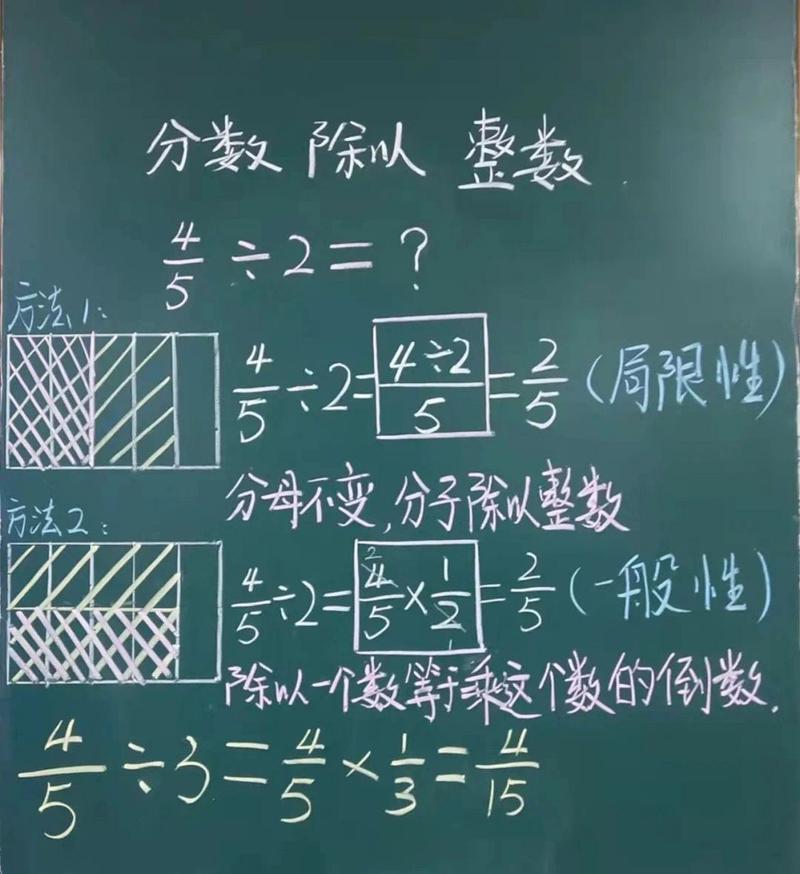 分数 除以 整数.
4/5 ÷ 2 = ?
方法1:
4/5 ÷ 2 = (4÷2)/5 = 2/5 (局限性)
分母不变,分子除以整数
方法2:
4/5 ÷ 2 = 4/5 × 1/2 = 2/5 (一般性)
2
1
除以一个数等于乘这个数的倒数.
4/5 ÷ 3 = 4/5 × 1/3 = 4/15